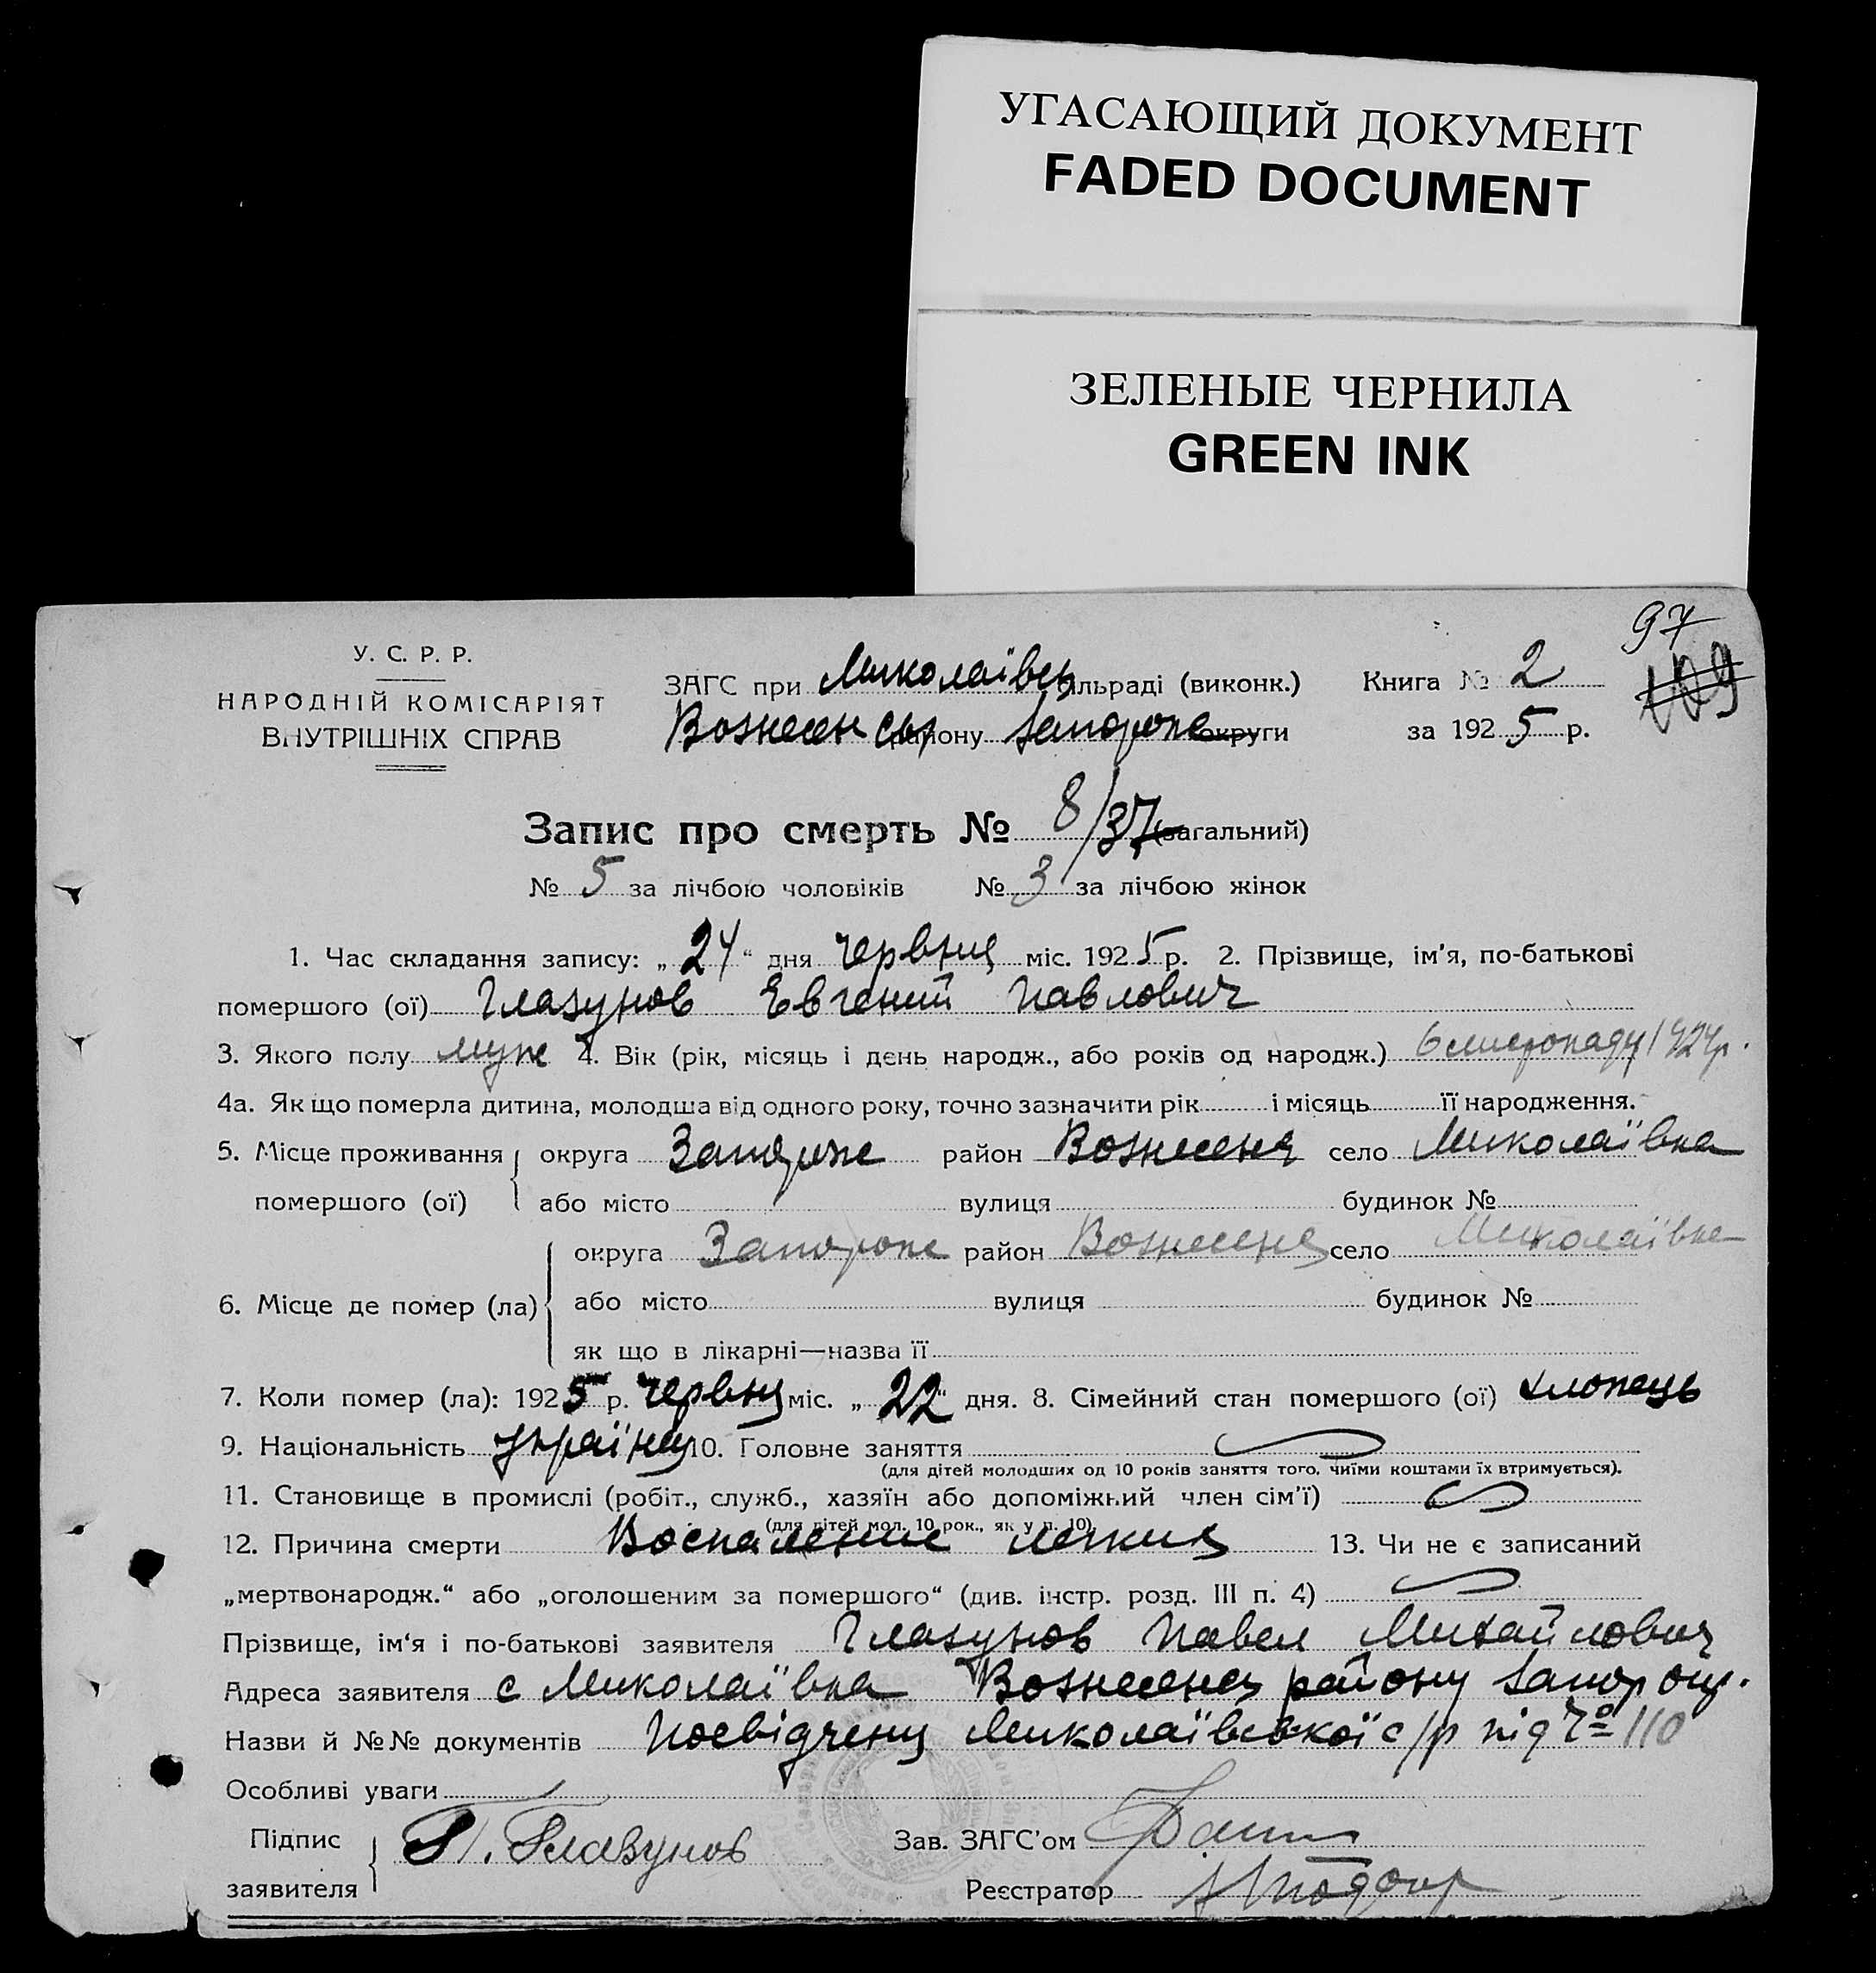 УГАСАЮЩИЙ ДОКУМЕНТ
FADED DOCUMENT
ЗЕЛЕНЫЕ ЧЕРНИЛА
GREEN INK
97
109
У. С. Р. Р.
НАРОДНІЙ КОМІСАРІЯТ
ВНУТРІШНІХ СПРАВ
ЗАГС при Миколаївсь сільраді (виконк.) Книга № 2
Вознесенськ району Запорож округи за 1925 р.
Запис про смерть № 8/37 (загальний)
№ 5 за лічбою чоловіків № 3 за лічбою жінок
1. Час складання запису: „24“ дня червня міс. 1925 р. 2. Прізвище, ім'я, по-батькові
помершого (ої) Глазунов Евгений Павлович
3. Якого полу муж 4. Вік (рік, місяць і день народж., або років од народж.) 6 листопаду 1924р.
4а. Як що померла дитина, молодша від одного року, точно зазначити рік і місяць її народження.
5. Місце проживання помершого (ої) округа Запорож район Вознесенс село Миколаївка
або місто вулиця будинок №
6. Місце де помер (ла) округа Запорож район Вознесенс село Миколаївка
або місто вулиця будинок №
як що в лікарні—назва її
7. Коли помер (ла): 1925 р. червня міс. „22“ дня. 8. Сімейний стан помершого (ої) хлопець
9. Національність україн 10. Головне заняття
(для дітей молодших од 10 років заняття того, чиїми коштами їх втримується).
11. Становище в промислі (робіт., служб., хазяїн або допоміжний член сім'ї)
(для дітей мол. 10 рок., як у п. 10)
12. Причина смерти Воспаление легких 13. Чи не є записаний
„мертвонародж.“ або „оголошеним за помершого“ (див. інстр. розд. III п. 4)
Прізвище, ім'я і по-батькові заявителя Глазунов Павел Михайлович
Адреса заявителя с Миколаївка Вознесенс району Запор окр.
Назви й №№ документів Посвідчення Миколаївської с/р під № 110
Особливі уваги
Підпис заявителя П. Глазунов Зав. ЗАГС'ом
Реєстратор